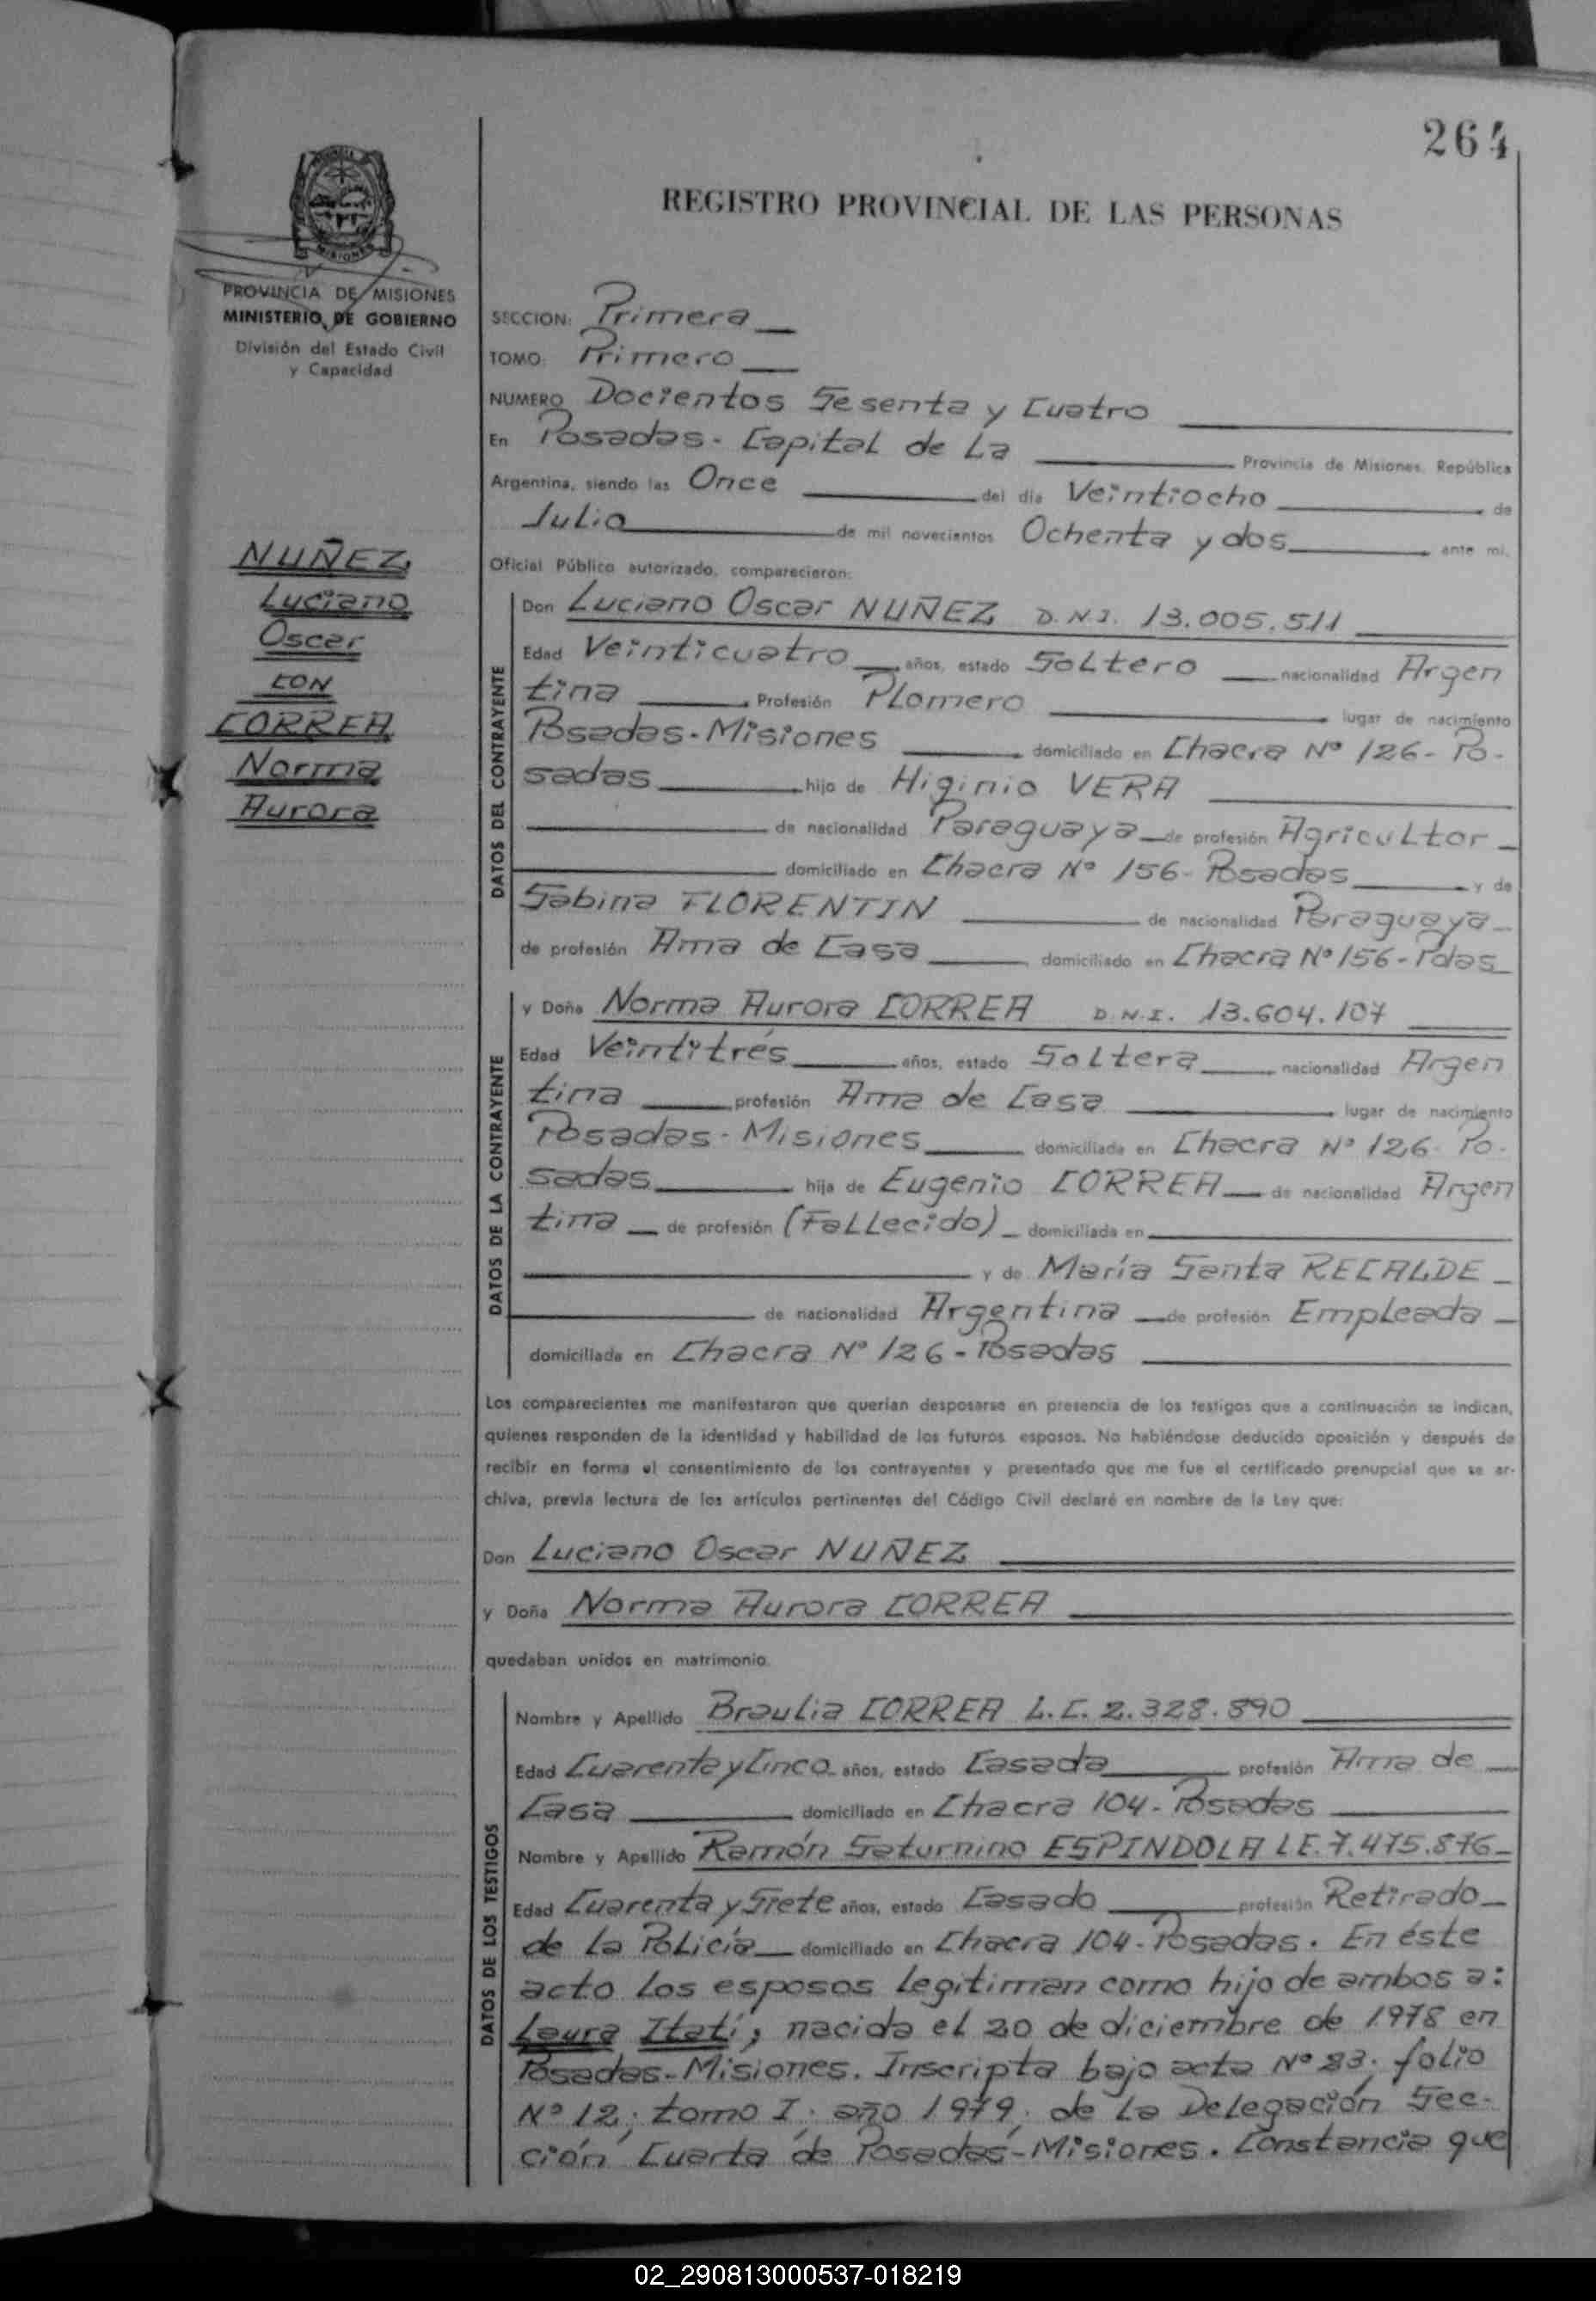 264
REGISTRO PROVINCIAL DE LAS PERSONAS
PROVINCIA DE MISIONES
MINISTERIO DE GOBIERNO
División del Estado Civil
y Capacidad
NUÑEZ
Luciano
Oscar
CON
CORREA
Norma
Aurora
SECCION: Primera
TOMO: Primero
NUMERO Docientos Sesenta y Cuatro
En Posadas - Capital de La Provincia de Misiones, República
Argentina, siendo las Once del día Veintiocho de
Julio de mil novecientos Ochenta y dos ante mi,
Oficial Público autorizado, comparecieron:
DATOS DEL CONTRAYENTE
Don Luciano Oscar NUÑEZ D.N.I. 13.005.511
Edad Veinticuatro años, estado Soltero nacionalidad Argen
tina Profesión Plomero lugar de nacimiento
Posadas - Misiones domiciliado en Chacra Nº 126 - Po-
sadas hijo de Higinio VERA
de nacionalidad Paraguaya de profesión Agricultor
domiciliado en Chacra Nº 156 - Posadas y de
Sabina FLORENTIN de nacionalidad Paraguaya
de profesión Ama de Casa domiciliado en Chacra Nº 156 - Pdas
DATOS DE LA CONTRAYENTE
y Doña Norma Aurora CORREA D.N.I. 13.604.107
Edad Veintitrés años, estado Soltera nacionalidad Argen
tina profesión Ama de Casa lugar de nacimiento
Posadas - Misiones domiciliada en Chacra Nº 126 - Po-
sadas hija de Eugenio CORREA de nacionalidad Argen
tina de profesión (Fallecido) domiciliada en
y de María Santa RECALDE
de nacionalidad Argentina de profesión Empleada
domiciliada en Chacra Nº 126 - Posadas
Los comparecientes me manifestaron que querían desposarse en presencia de los testigos que a continuación se indican,
quienes responden de la identidad y habilidad de los futuros esposos. No habiéndose deducido oposición y después de
recibir en forma el consentimiento de los contrayentes y presentado que me fue el certificado prenupcial que se ar-
chiva, previa lectura de los artículos pertinentes del Código Civil declaré en nombre de la Ley que:
Don Luciano Oscar NUÑEZ
y Doña Norma Aurora CORREA
quedaban unidos en matrimonio.
DATOS DE LOS TESTIGOS
Nombre y Apellido Braulia CORREA L.C. 2.328.890
Edad Cuarenta y Cinco años, estado Casada profesión Ama de
Casa domiciliado en Chacra 104 - Posadas
Nombre y Apellido Ramón Saturnino ESPINDOLA L.E. 7.475.876
Edad Cuarenta y Siete años, estado Casado profesión Retirado
de la Policía domiciliado en Chacra 104 - Posadas. En éste
acto los esposos legitiman como hijo de ambos a:
Laura Itatí, nacida el 20 de diciembre de 1978 en
Posadas - Misiones. Inscripta bajo acta Nº 83; folio
Nº 12; tomo I; año 1979; de la Delegación Sec-
ción Cuarta de Posadas - Misiones. Constancia que
02_290813000537-018219